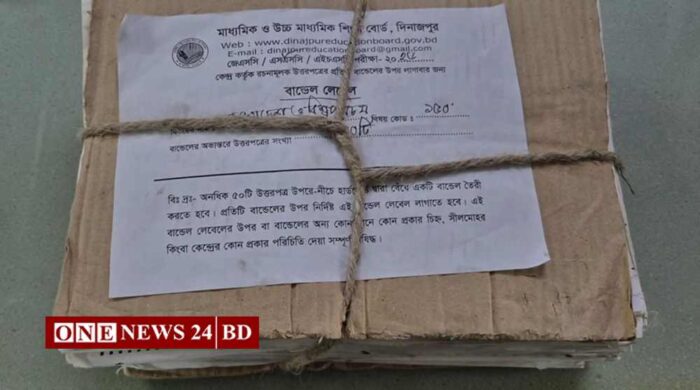 মাধ্যমিক ও উচ্চ মাধ্যমিক শিক্ষা বোর্ড, দিনাজপুর
Web : www.dinajpureducationboard.gov.bd
E-mail : dinajpureducationboard@gmail.com
জেএসসি / এসএসসি / এইচএসসি পরীক্ষা- ২০
কেন্দ্র কর্তৃক রচনামূলক উত্তরপত্রের প্রতিটি বান্ডেলের উপর লাগাবার জন্য
বান্ডেল লেবেল
বিষয় কোড : ১৫০
বান্ডেলের অভ্যন্তরে উত্তরপত্রের সংখ্যা
বিঃ দ্রঃ- অনধিক ৫০টি উত্তরপত্র উপরে-নীচে দ্বারা বেঁধে একটি বান্ডেল তৈরী
করতে হবে। প্রতিটি বান্ডেলের উপর নির্দিষ্ট এই লেবেল লাগাতে হবে। এই
বান্ডেল লেবেলের উপর বা বান্ডেলের অন্য কোন কোন প্রকার চিহ্ন, সীলমোহর
কিংবা কেন্দ্রের কোন প্রকার পরিচিতি দেয়া সম্পূর্ণ
ONE NEWS 24 BD